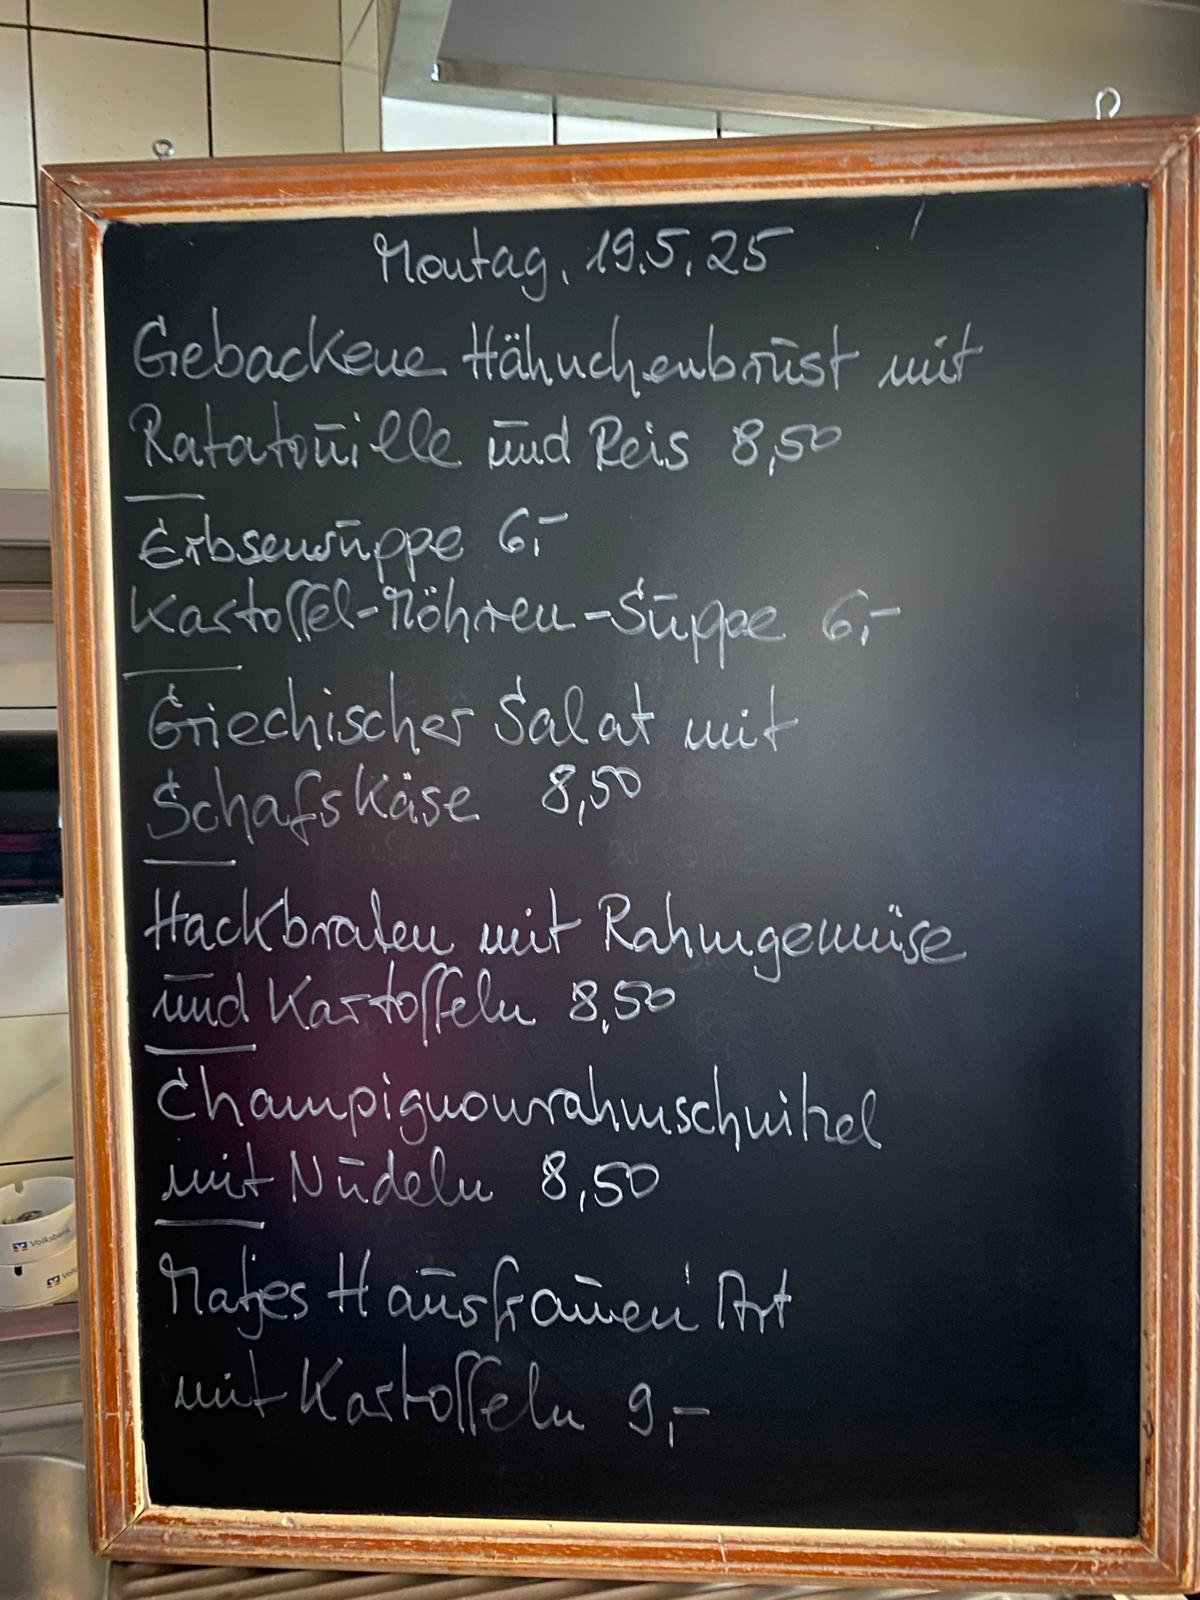 Montag, 19.5.25
Gebackene Hähnchenbrust mit
Ratatouille und Reis 8,50
Erbsensuppe 6,-
Kartoffel-Möhren-Suppe 6,-
Griechischer Salat mit
Schafskäse 8,50
Hackbraten mit Rahmgemüse
und Kartoffeln 8,50
Champignonrahmschnitzel
mit Nudeln 8,50
Matjes Hausfrauen Art
mit Kartoffeln 9,-
Volksbank